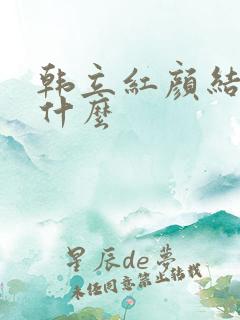 韩立红颜结
什麽
星辰de夢
未经同意禁止转载